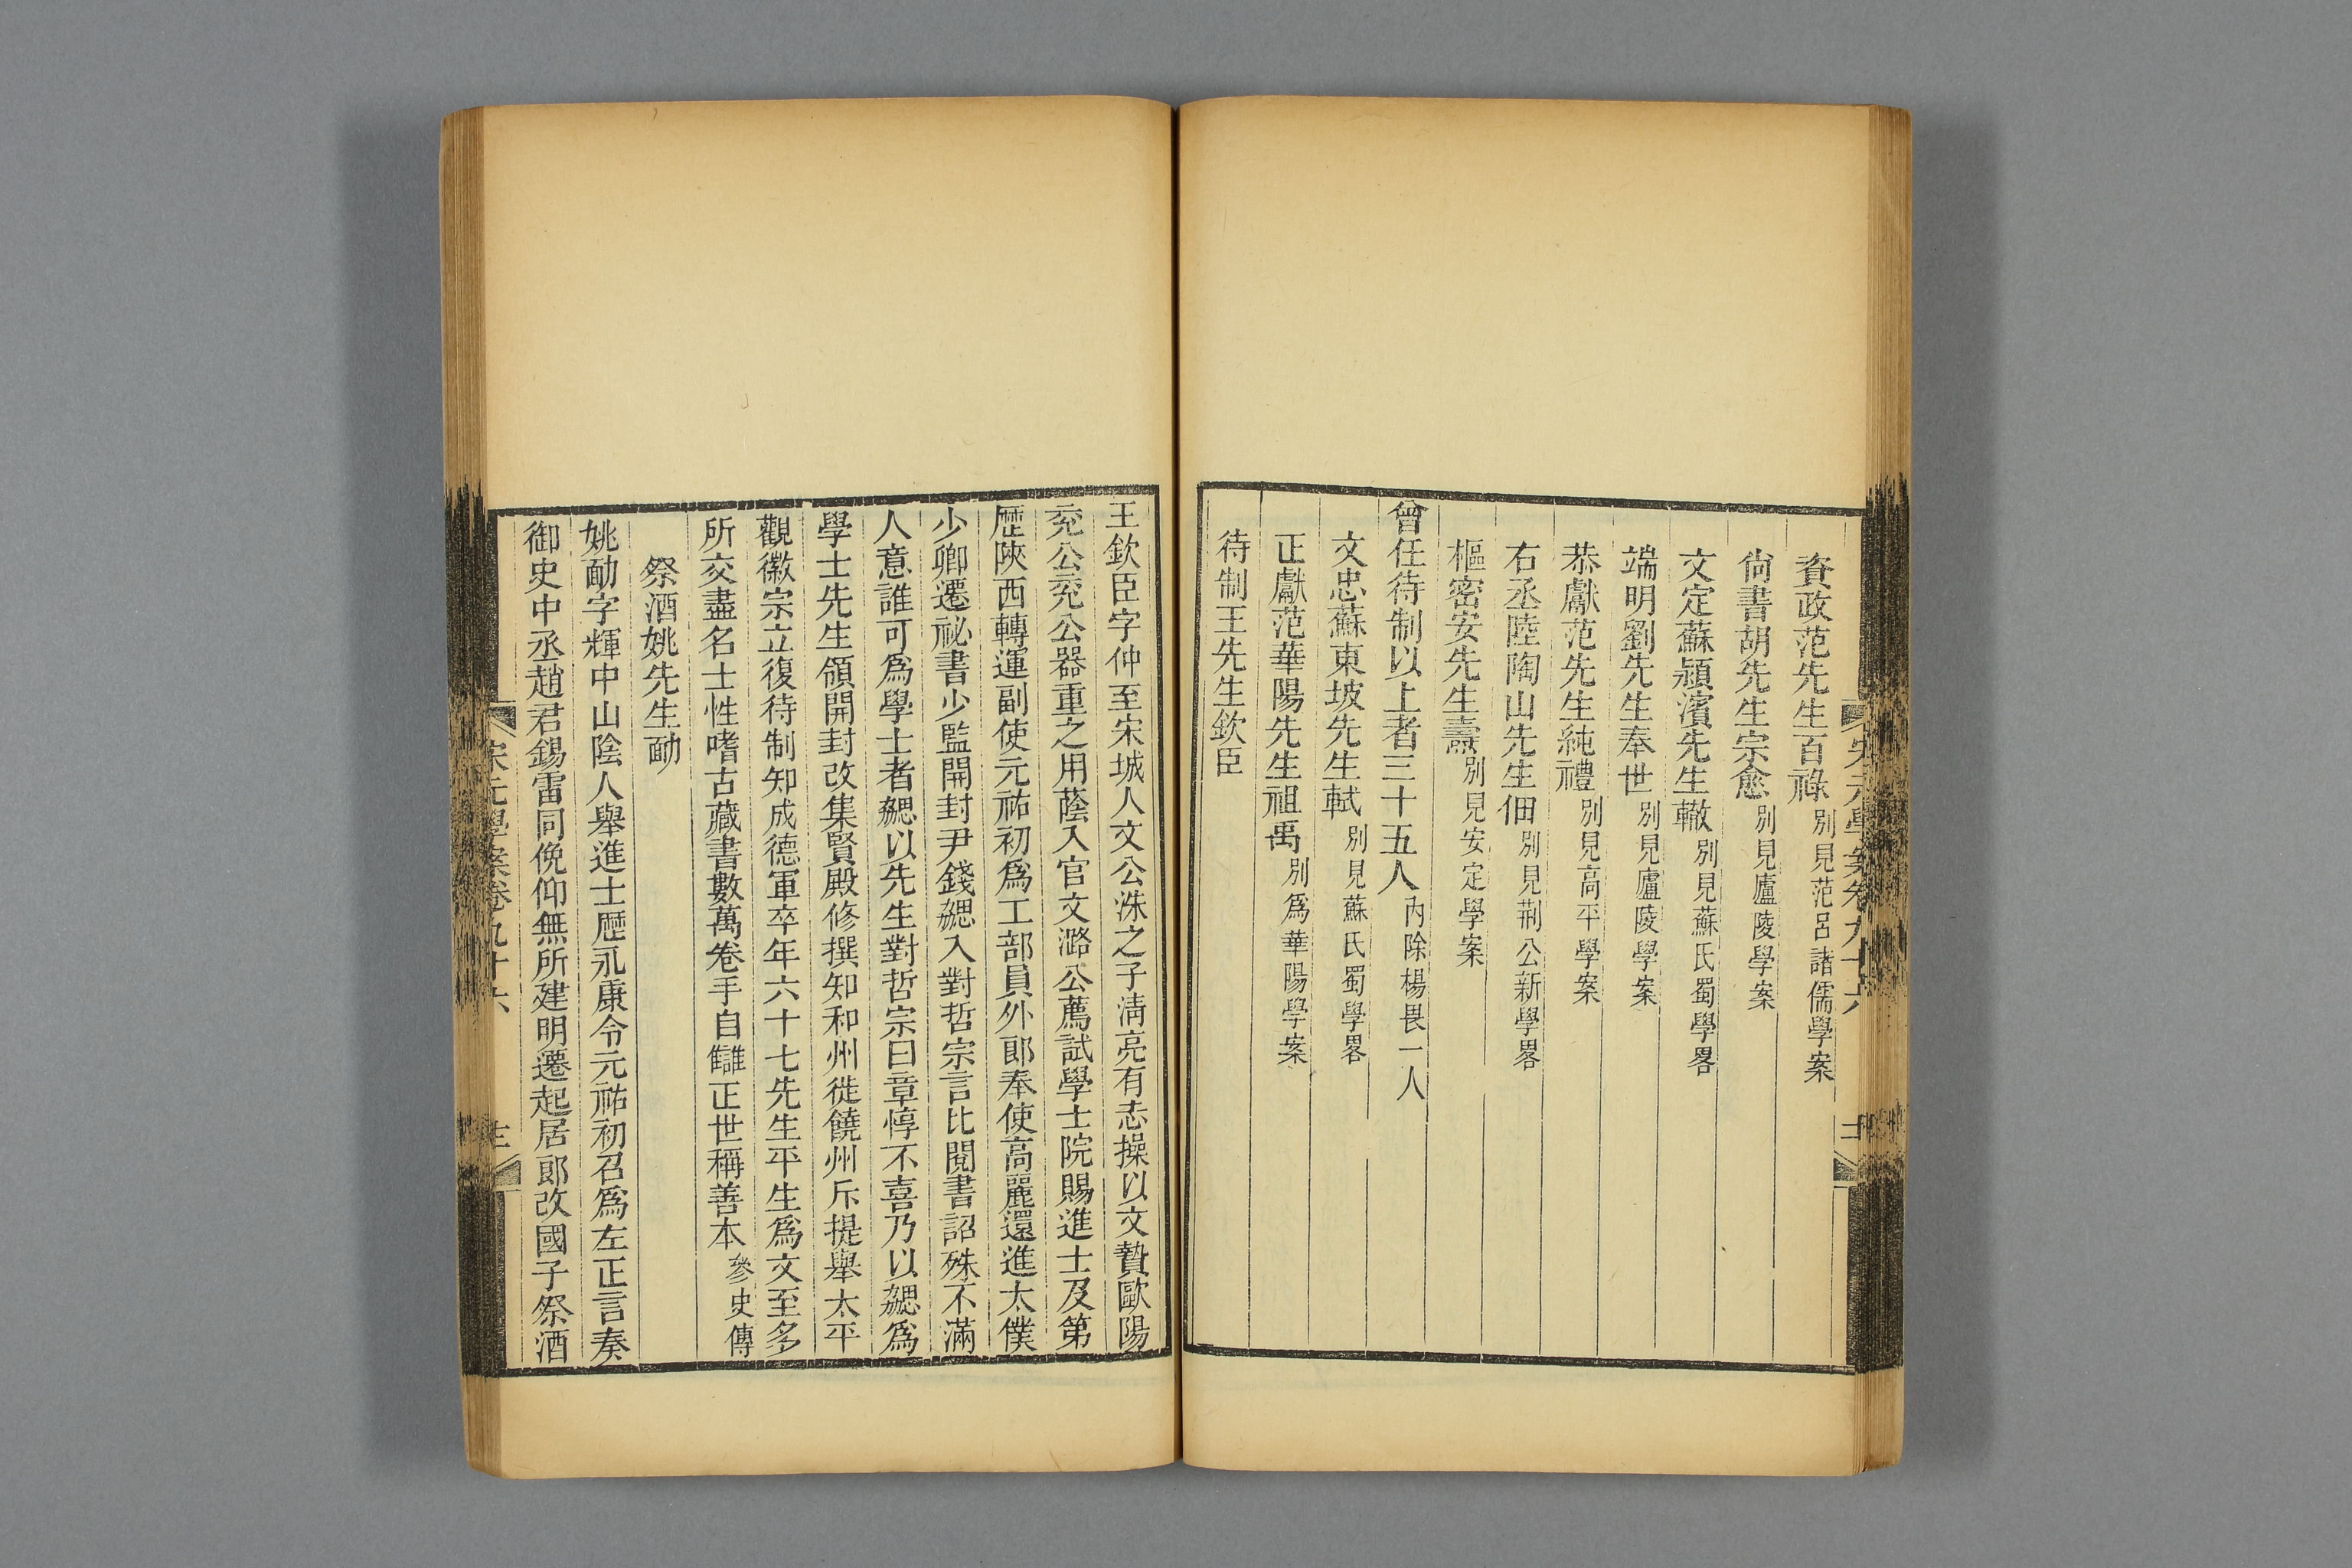 資政范先生百祿別見范呂諸儒學案
尙書胡先生宗愈別見廬陵學案
文定蘇潁濱先生轍別見蘇氏蜀學畧
端明劉先生奉世別見廬陵學案
恭獻范先生純禮別見高平學案
右丞陸陶山先生佃別見荆公新學畧
樞密安先生燾別見安定學案
曾任待制以上者三十五人內除楊畏一人
文忠蘇東坡先生軾別見蘇氏蜀學畧
正獻范華陽先生祖禹別爲華陽學案
待制王先生欽臣
王欽臣字仲至宋城人文公洙之子淸亮有志操以文贄歐陽
兖公兖公器重之用蔭入官文潞公薦試學士院賜進士及第
歷陝西轉運副使元祐初爲工部員外郎奉使高麗還進太僕
少卿遷祕書少監開封尹錢勰入對哲宗言比閱書詔殊不滿
人意誰可爲學士者勰以先生對哲宗曰章惇不喜乃以勰爲
學士先生領開封改集賢殿修撰知和州徙饒州斥提舉太平
觀徽宗立復待制知成德軍卒年六十七先生平生爲文至多
所交盡名士性嗜古藏書數萬卷手自讎正世稱善本參史傳
祭酒姚先生勔
姚勔字輝中山陰人舉進士歷永康令元祐初召爲左正言奏
御史中丞趙君錫雷同俛仰無所建明遷起居郎改國子祭酒
宋元學案卷九十六